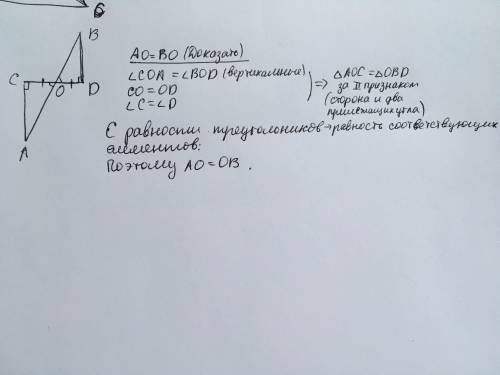 B
C
O
D
A
AO=BO (Доказать)
∠COA = ∠BOD (вертикальные)
CO = OD
∠C = ∠D
⇒ △AOC = △OBD
за II признаком
(сторона и два
прилежащих угла)
Є равности треугольников → равность соответствующих
элементов:
Поэтому AO = OB.